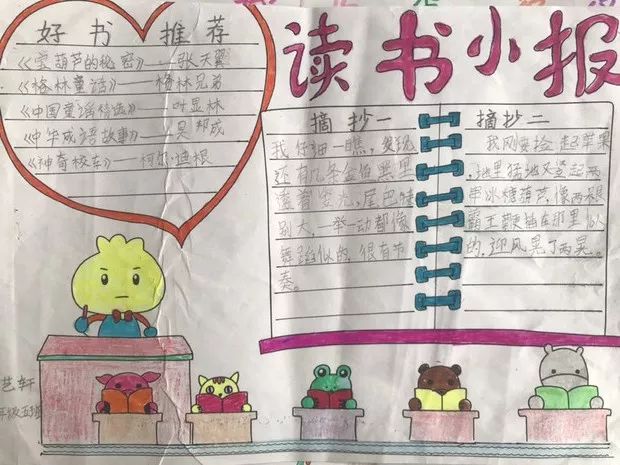 好书推荐
《宝葫芦的秘密》——张天翼
《格林童话》——格林兄弟
《中国童谣精选》——叶显林
《中华成语故事》——吴邦成
《神奇校车》——柯尔·迪根
读书小报
摘抄一
我仔细一瞧,发现
还有几条金鱼黑里
透着金光,尾巴特
别大,一举一动都像
舞蹈似的,很有节
奏。
摘抄二
我刚要捡起苹果
,地里猛地又竖起两
串冰糖葫芦,像两根
霸王鞭插在那里似
的,迎风晃了两晃。
艺轩
年级五班